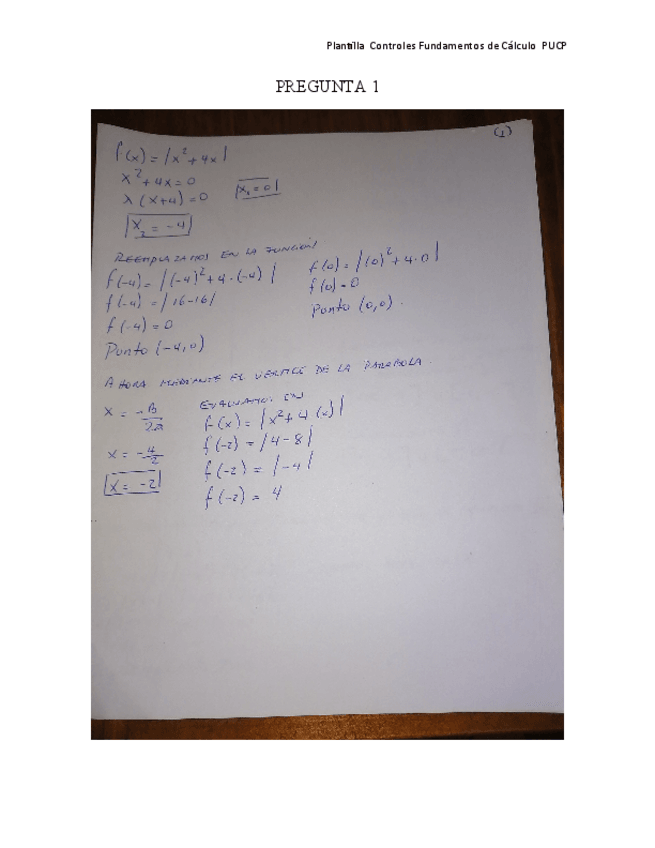 Plantilla Controles Fundamentos de Cálculo PUCP
PREGUNTA 1
(1)
f(x) = |x² + 4x|
x² + 4x = 0
x (x+4) = 0
x₁ = 0
x₂ = -4
REEMPLAZAMOS EN LA FUNCIÓN
f(-4) = |(-4)² + 4·(-4)|
f(-4) = |16-16|
f(-4) = 0
Punto (-4,0)
f(0) = |(0)² + 4·0|
f(0) = 0
Punto (0,0).
AHORA MEDIANTE EL VERTICE DE LA PARABOLA.
x = -B/2a
x = -4/2
x = -2
EVALUAMOS EN
f(x) = |x² + 4(x)|
f(-2) = |4-8|
f(-2) = |-4|
f(-2) = 4